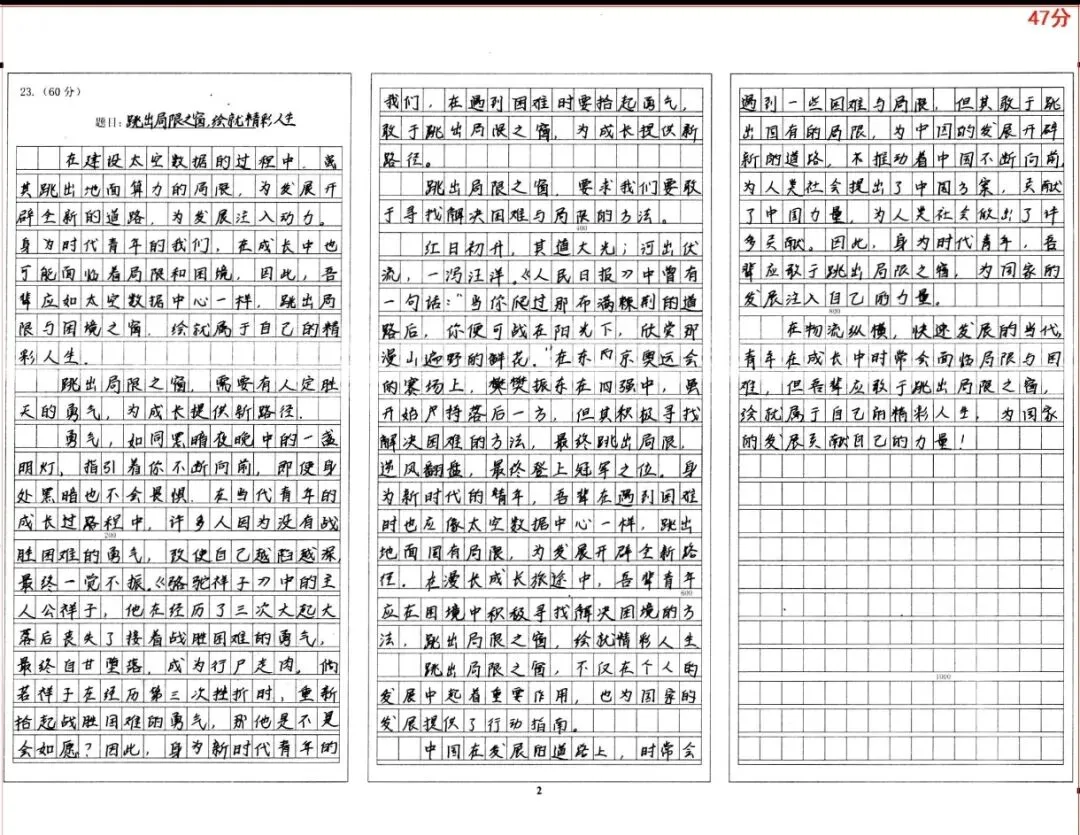 47分
23.（60分）
题目：跳出局限之窗，绘就精彩人生
在建设太空数据的过程中，虽
其跳出地面算力的局限，为发展开
辟全新的道路，为发展注入动力。
身为时代青年的我们，在成长中也
可能面临着局限和困境，因此，吾
辈应如太空数据中心一样，跳出局
限与困境之窗，绘就属于自己的精
彩人生.
跳出局限之窗，需要有人定胜
天的勇气，为成长提供新路径.
勇气，如同黑暗夜晚中的一盏
明灯，指引着你不断向前，即使身
处黑暗也不会畏惧.在当代青年的
成长过路程中，许多人因为没有战
200
胜困难的勇气，致使自己越陷越深，
最终一觉不振。《骆驼祥子》中的主
人公祥子，他在经历了三次大起大
落后丧失了接着战胜困难的勇气，
最终自甘堕落，成为行尸走肉。倘
若祥子在经历第三次挫折时，重新
抬起战胜困难的勇气，那他是不是
会如愿？因此，身为新时代青年的
我们，在遇到困难时要抬起勇气，
敢于跳出局限之窗，为成长提供新
路径。
跳出局限之窗，要求我们要敢
于寻找解决困难与局限的方法。
400
红日初升，其道大光；河出伏
流，一泻汪洋。《人民日报》中曾有
一句话："当你爬过那布满棘荆的道
路后，你便可战在阳光下，欣赏那
漫山遍野的鲜花。"在东京奥运会
的赛场上，樊振东在四强中，虽
开始尸持落后一方，但其积极寻找
解决困难的方法，最终跳出局限，
逆风翻盘，最终登上冠军之位。身
为新时代的青年，吾辈在遇到困难
时也应像太空数据中心一样，跳出
地面固有局限，为发展开辟全新路
径.在漫长成长旅途中，吾辈青年
600
应在困境中积极寻找解决困境的方
法，跳出局限之窗，绘就精彩人生
跳出局限之窗，不仅在个人的
发展中起着重要作用，也为国家的
发展提供了行动指南。
中国在发展的道路上，时常会
2
遇到一些困难与局限，但其敢于跳
出固有的局限，为中国的发展开辟
新的道路，不推动着中国不断向前，
为人类社会提出了中国方案，贡献
了中国力量，为人类社会做出了许
多贡献。因此，身为时代青年，吾
辈应敢于跳出局限之窗，为国家的
发展注入自己的力量。
800
在物流纵横，快速发展的当代，
青年在成长中时常会面临局限与困
难，但吾辈应敢于跳出局限之窗，
绘就属于自己的精彩人生，为国家
的发展贡献自己的力量！
1000